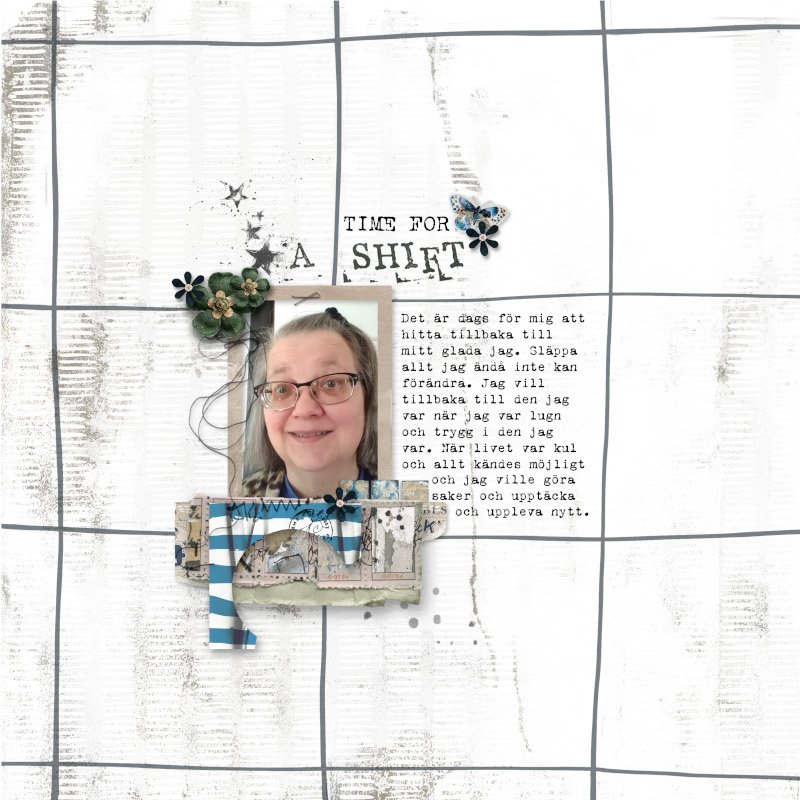 TIME FOR
A SHIFT
Det är dags för mig att
hitta tillbaka till
mitt glada jag. Släppa
allt jag ändå inte kan
förändra. Jag vill
tillbaka till den jag
var när jag var lugn
och trygg i den jag
var. När livet var kul
och allt kändes möjligt
och jag ville göra
saker och upptäcka
och uppleva nytt.